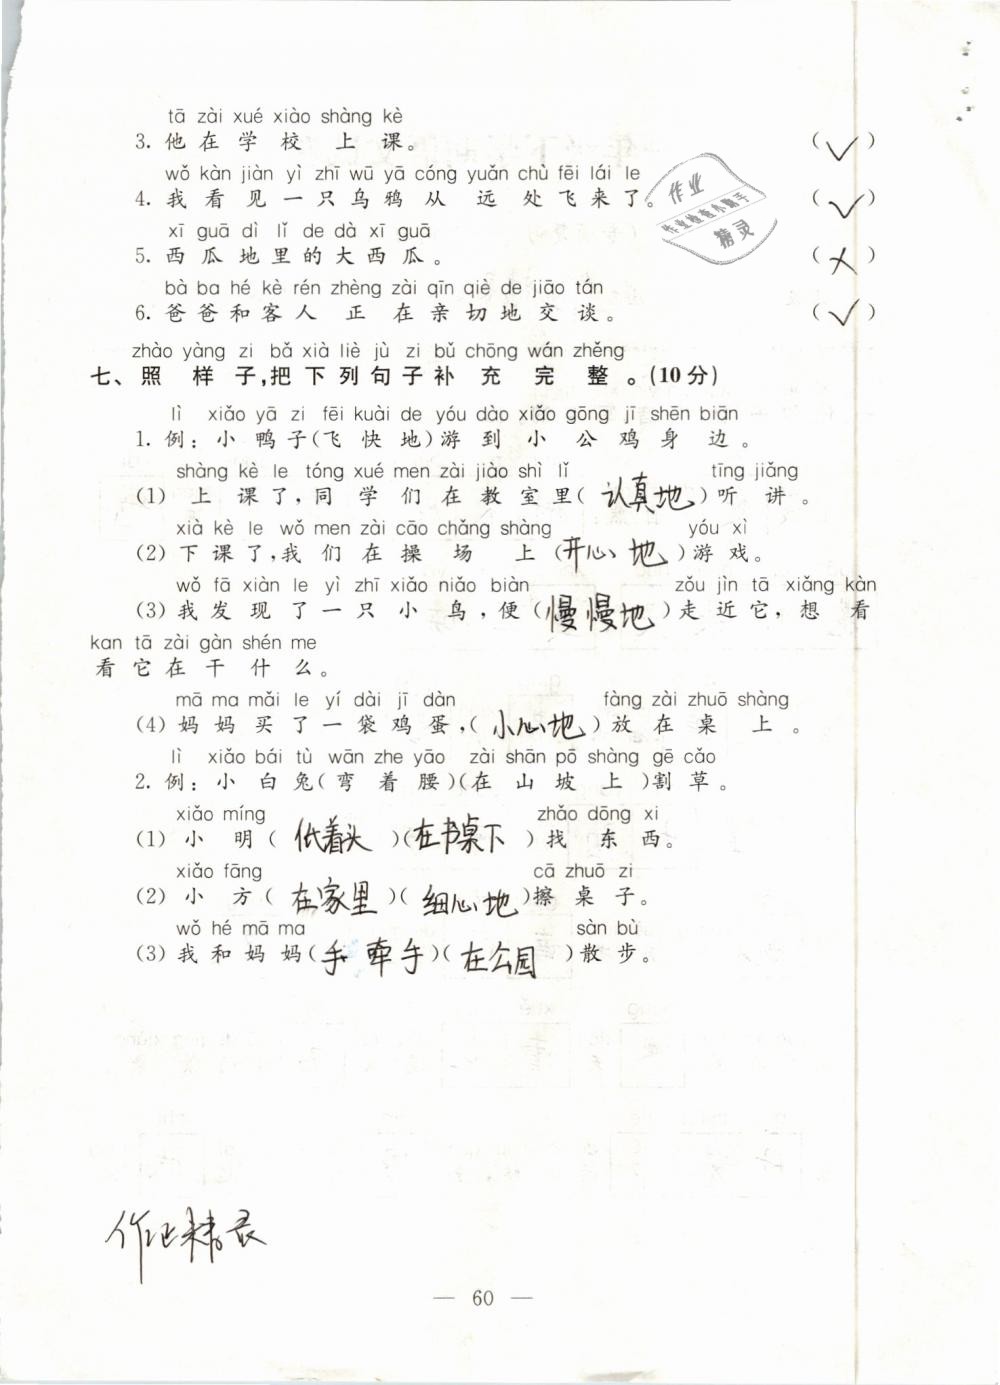 tā zài xué xiào shàng kè
3. 他在学校上课。 (✓)
wǒ kàn jiàn yì zhī wū yā cóng yuǎn chù fēi lái le
4. 我看见一只乌鸦从远处飞来了。 (✓)
xī guā dì lǐ de dà xī guā
5. 西瓜地里的大西瓜。 (×)
bà ba hé kè rén zhèng zài qīn qiè de jiāo tán
6. 爸爸和客人正在亲切地交谈。 (✓)
作业
作业检查小助手
精灵
zhào yàng zi bǎ xià liè jù zi bǔ chōng wán zhěng
七、照样子,把下列句子补充完整。(10分)
lì xiǎo yā zi fēi kuài de yóu dào xiǎo gōng jī shēn biān
1. 例:小鸭子(飞快地)游到小公鸡身边。
shàng kè le tóng xué men zài jiào shì lǐ tīng jiǎng
(1) 上课了,同学们在教室里(认真地)听讲。
xià kè le wǒ men zài cāo chǎng shàng yóu xì
(2) 下课了,我们在操场上(开心地)游戏。
wǒ fā xiàn le yì zhī xiǎo niǎo biàn zǒu jìn tā xiǎng kàn
(3) 我发现了一只小鸟,便(慢慢地)走近它,想看
kan tā zài gàn shén me
看它在干什么。
mā ma mǎi le yí dài jī dàn fàng zài zhuō shàng
(4) 妈妈买了一袋鸡蛋,(小心地)放在桌上。
lì xiǎo bái tù wān zhe yāo zài shān pō shàng gē cǎo
2. 例:小白兔(弯着腰)(在山坡上)割草。
xiǎo míng zhǎo dōng xi
(1) 小明(低着头)(在书桌下)找东西。
xiǎo fāng cā zhuō zi
(2) 小方(在家里)(细心地)擦桌子。
wǒ hé mā ma sàn bù
(3) 我和妈妈(手牵手)(在公园)散步。
— 60 —